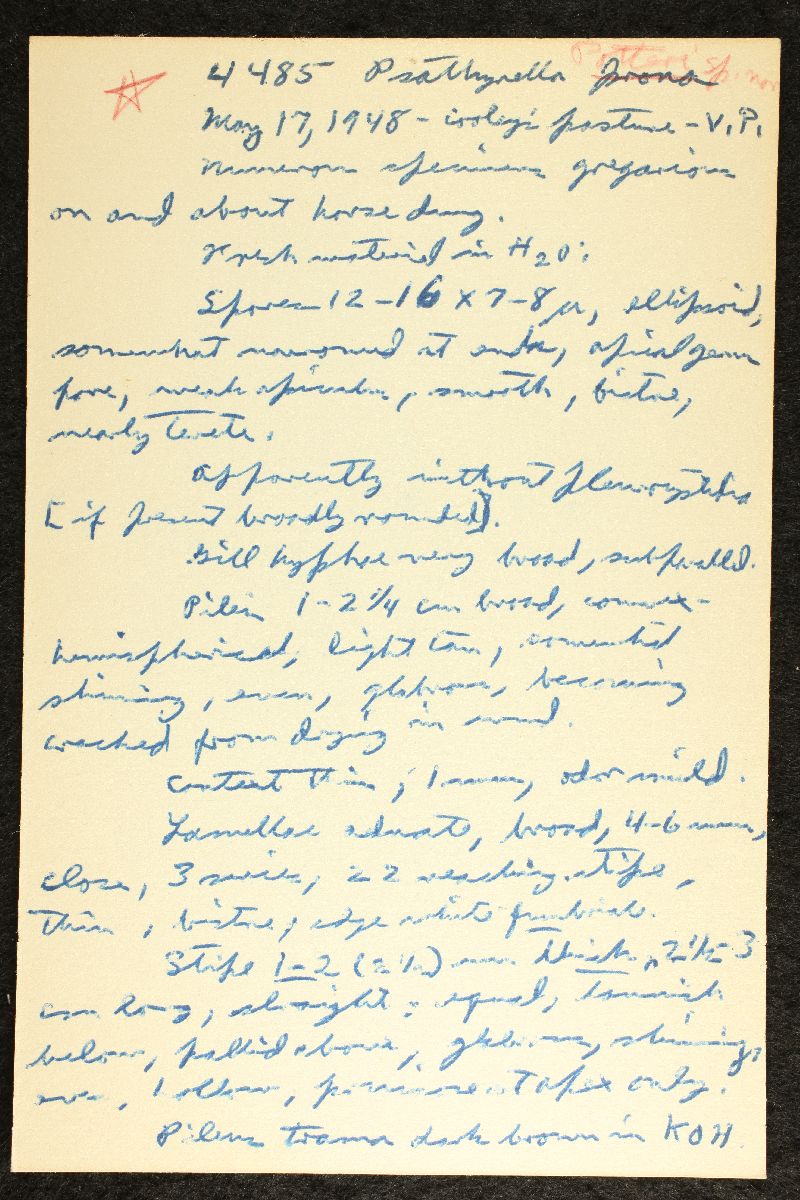 Potteri sp. nov
4485 Psathyrella prona
May 17, 1948 - Cooley's pasture - V.P.
Numerous specimens gregarious
on and about horse dung.
Fresh material in H2O:
Spores 12-16 x 7-8 μ, ellipsoid,
somewhat narrowed at ends, apical germ
pore, weak apiculus, smooth, bistre,
nearly terete.
Apparently without pleurocystidia
[if present broadly rounded].
Gill hyphae very broad, subparall.
Pilei 1-2 1/4 cm broad, convex-
hemispherical, light tan, somewhat
shining, even, glabrous, becoming
cracked from drying in wind.
Context thin, 1 mm, odor mild.
Lamellae adnate, broad, 4-6 mm,
close, 3 series, 22 reaching stipe,
thin, bistre, edge white fimbriate.
Stipe 1-2 (2 1/2) mm thick, 2 1/2-3
cm long, straight, equal, tannish
below, pallid above, glabrous, shining,
even, hollow, pruinose at apex only.
Pileus trama dark brown in KOH.